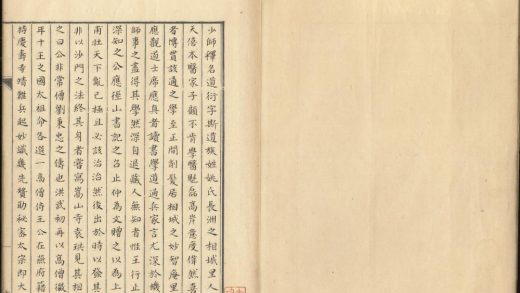 少師釋名道衍字斯道族姓姚氏長洲之相城里人
天僖本醫家子顧不肯學醫魁磊高岸意度偉然喜
者博貫該通之學至正間剃髮居相城之妙智庵里
應觀道士席應真者讀書學道通兵家言尤深於機
師事之盡得其學然深自退藏人無知者惟王行止
深知之公應徑山書記之召止仲為文贈之以為上
甫壯天下亂已極且必該治治然後出於時以發其
非以沙門之法終其身者嘗寓嵩山寺袁珙見其相
之曰公非常僧劉秉忠之儔也洪武初再以高僧徵
年十王之國太祖命各選一高僧侍王公在燕府籍
持慶壽寺靖難兵起妙識幾先贊助秘密太宗即大